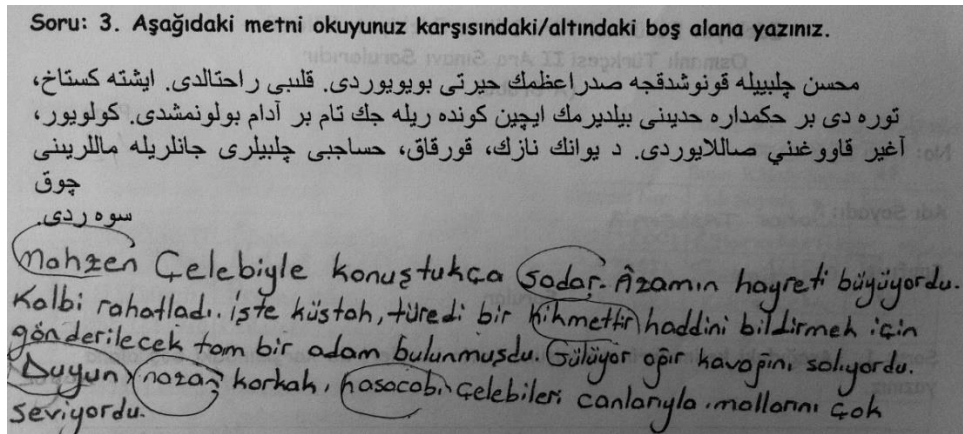 Soru: 3. Aşağıdaki metni okuyunuz karşısındaki/altındaki boş alana yazınız.
محسن چلبييله قونوشدقجه صدر اعظمك حيرتى بويويوردى. قلبى راحتالدى. ايشته كستاخ،
توره دى بر حكمداره حدينى بيلديرمك ايچين كونده ريله جك تام بر آدام بولونمشدى. كولويور،
آغير قاووغني صاللايوردى. د يوانك نازك، قورقاق، حساجبى چلبيلرى جانلريله ماللرينى
چوق
سوه ردى.
Mahzen Çelebiyle konuştukca Sadar-Âzamın hayreti büyüyordu.
Kalbi rahatladı. işte küstah, türedi bir kihmettir haddini bildirmek için
gönderilecek tam bir adam bulunmuşdu. Gülüyor ağır kavağını salıyordu.
Duyun, nazan korkak, hasacabı Çelebileri canlarıyla mallarını çok
seviyordu.